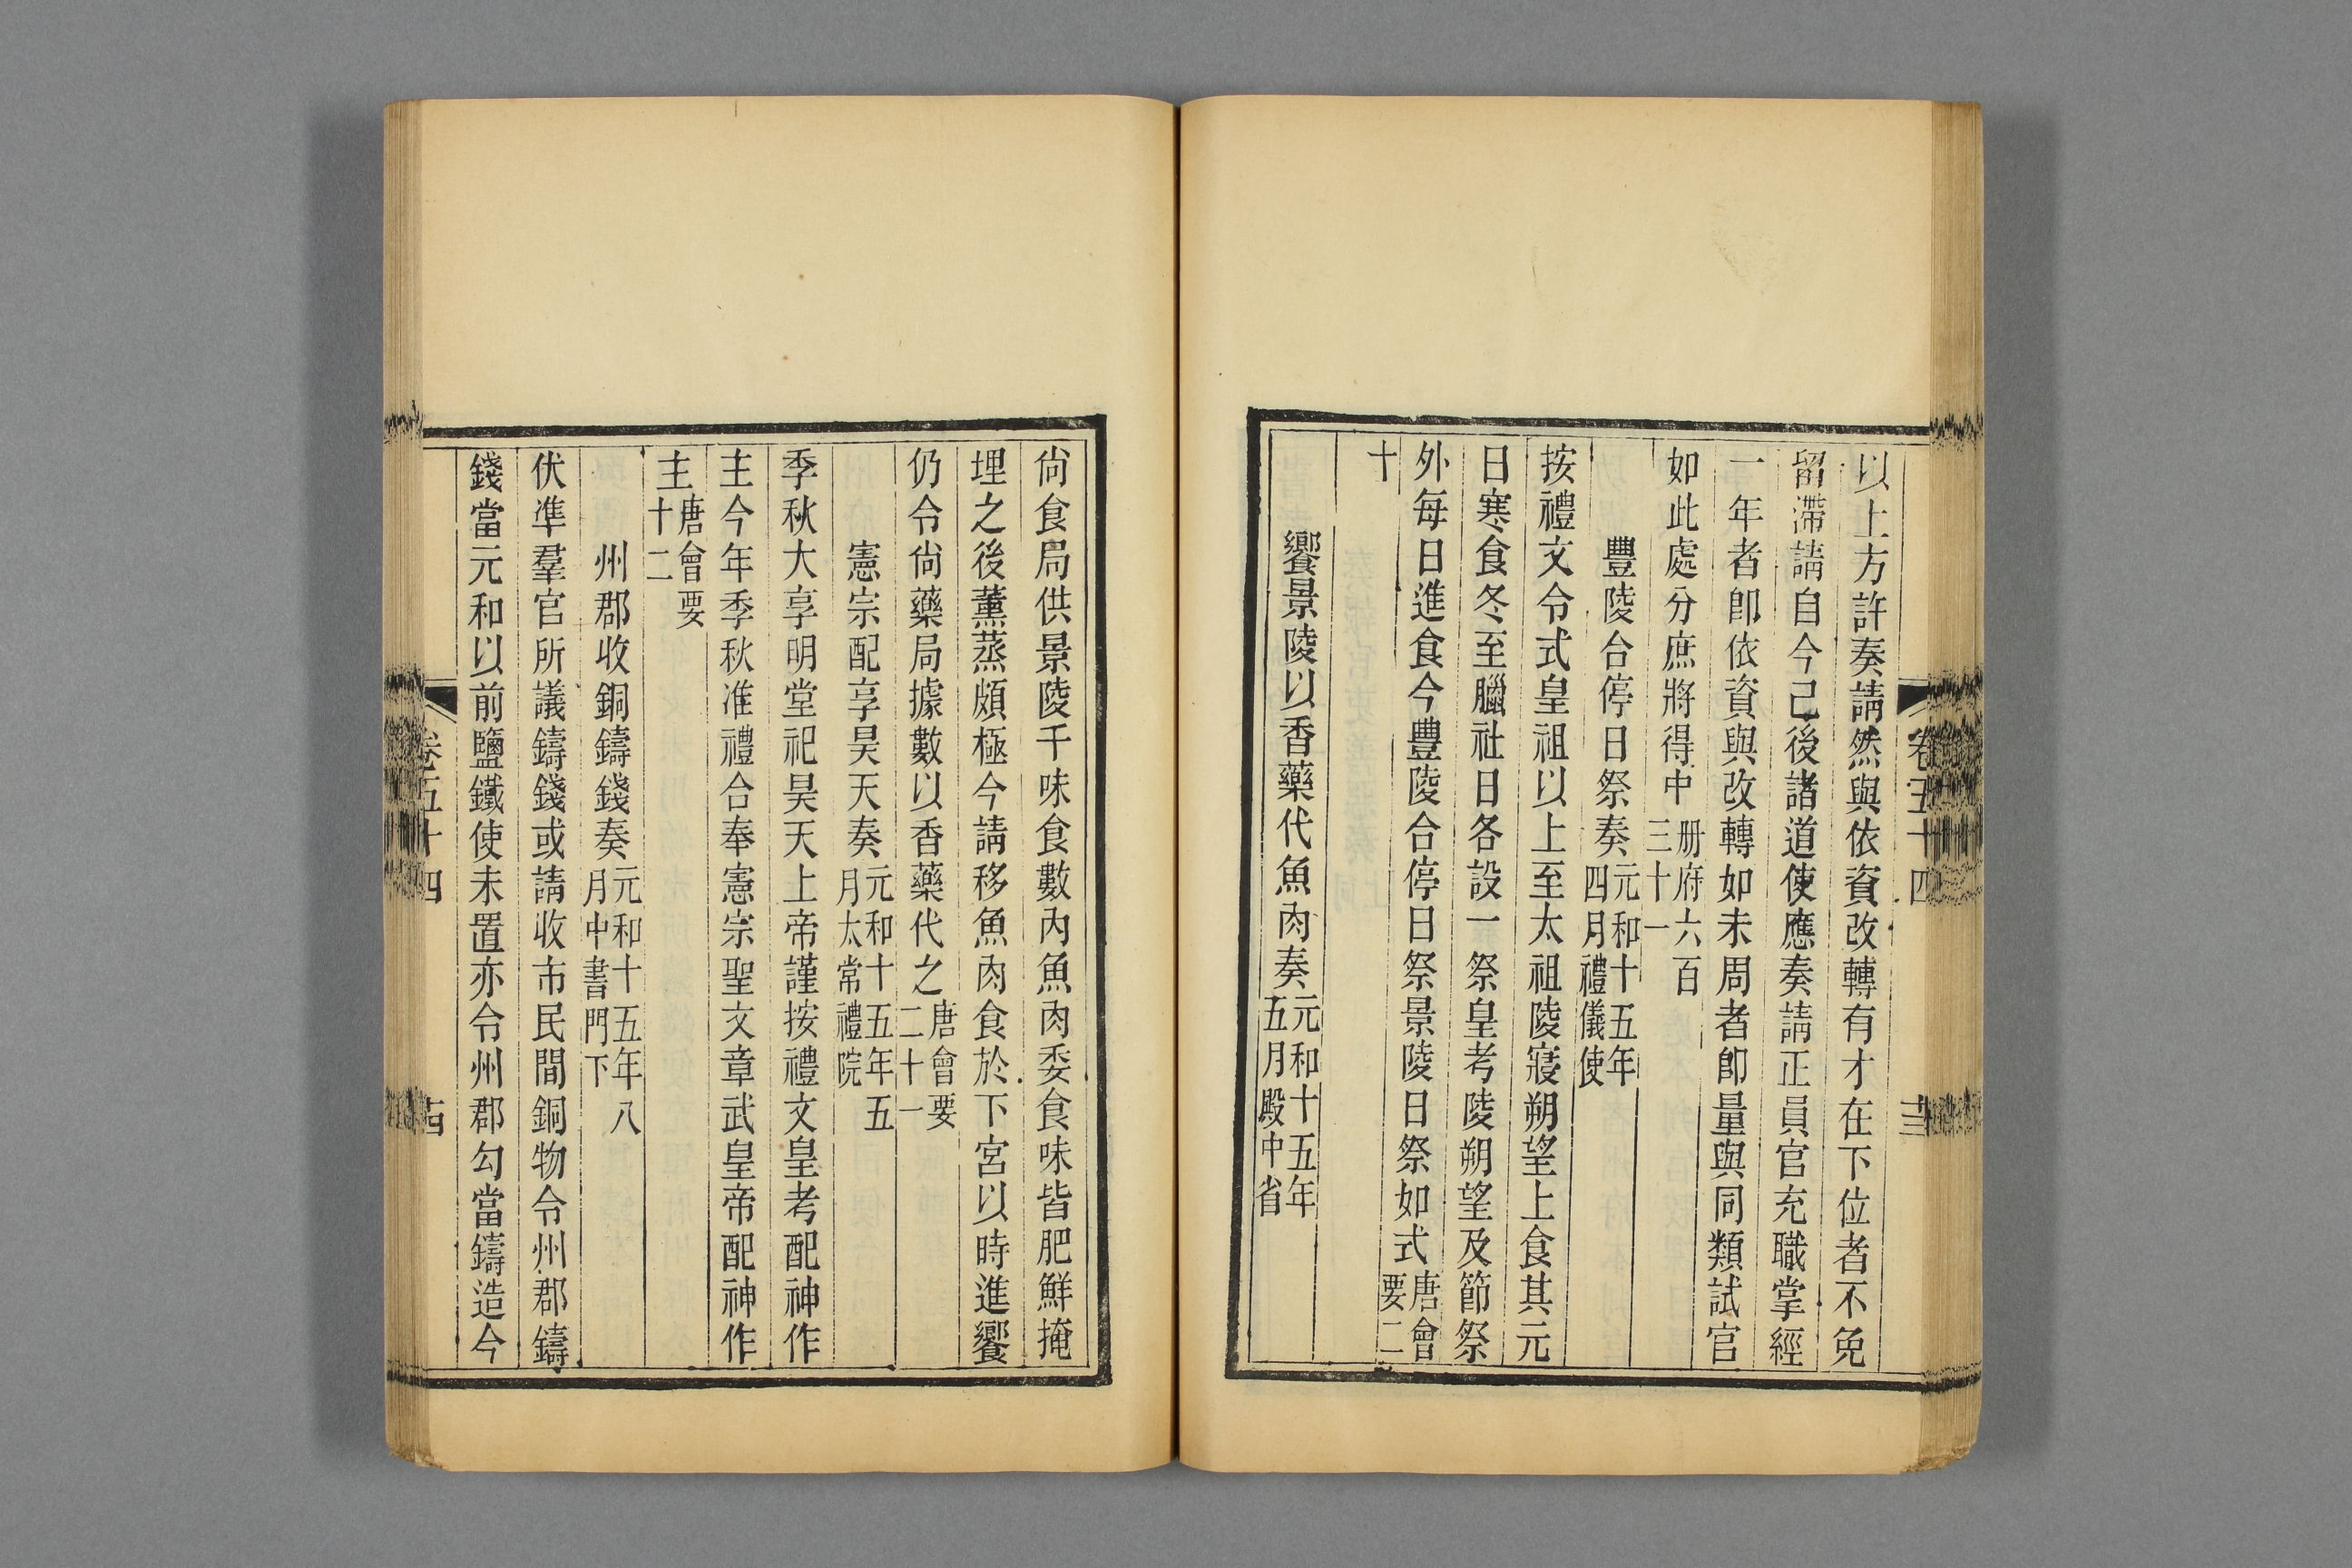 以上方許奏請然與依資改轉有才在下位者不免
留滯請自今已後諸道使應奏請正員官充職掌經
一年者卽依資與改轉如未周者卽量與同類試官
如此處分庶將得中冊府六百三十一
豐陵合停日祭奏元和十五年四月禮儀使
按禮文令式皇祖以上至太祖陵寢朔望上食其元
日寒食冬至臘社日各設一祭皇考陵朔望及節祭
外每日進食今豐陵合停日祭景陵日祭如式唐會要二
十
饗景陵以香藥代魚肉奏元和十五年五月殿中省
卷五十四
十三
尙食局供景陵千味食數內魚肉委食味皆肥鮮掩
埋之後薰蒸頗極今請移魚肉食於下宮以時進饗
仍令尙藥局據數以香藥代之唐會要二十一
憲宗配享昊天奏元和十五年五月太常禮院
季秋大享明堂祀昊天上帝謹按禮文皇考配神作
主今年季秋准禮合奉憲宗聖文章武皇帝配神作
主唐會要十二
州郡收銅鑄錢奏元和十五年八月中書門下
伏準羣官所議鑄錢或請收市民間銅物令州郡鑄
錢當元和以前鹽鐵使未置亦令州郡勾當鑄造今
卷五十四
十四